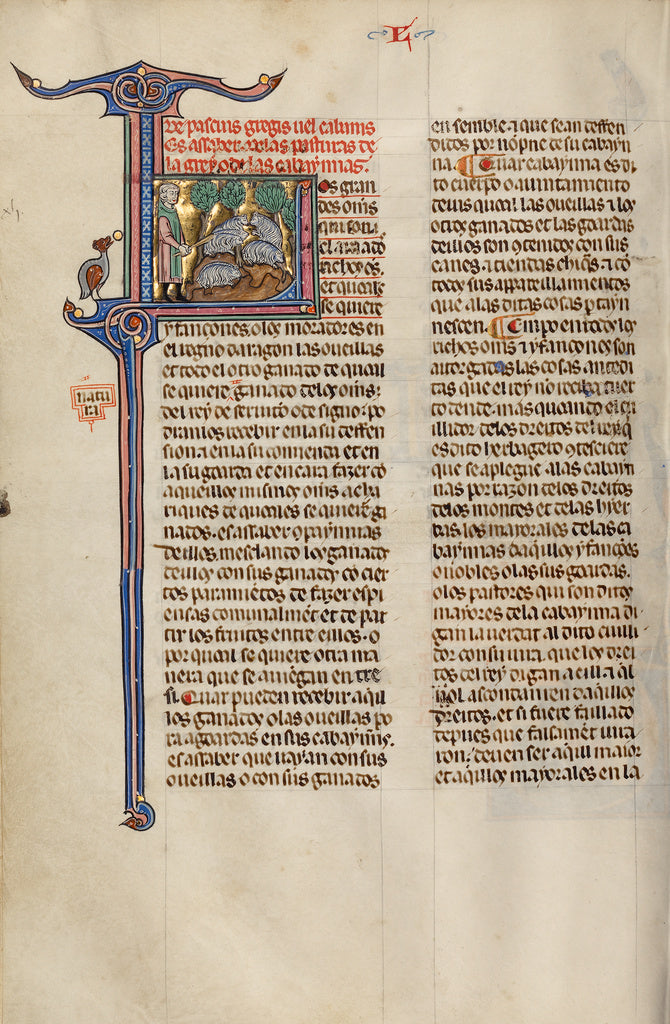 L
De pascuis gregis uel cabanis
Es assaber de las pasturas de
la grey o de las cabaynnas.
os gran
des omes
et quales
se quiere
yfançones o los moradores en
el regno daragon las oueillas
et todo el otro ganado de quail
se quiere ganado de los omes.
del rey de seruitio o de signor: po
dramos recebir en la su deffen
sion a en la su comienda et en
la su goarda et encara fazer co
aqueillos mismos omes a cha
riques de quales se quiere ga
nados. es assaber conpaynnias
deillos mesclando los ganados
deillos con sus ganados co cier
tos paramientos de fazer espi
ensas comunalment et de par
tir los fruitos entre eillos. o
por qual se quiere otra ma
nera que se auiengan entre
si. Quar pueden recebir aqui
los ganados o las oueillas po
ra agoardas en sus cabaynnas.
es assaber que uayan con sus
oueillas o con sus ganados
natu
ra
ensemble. a que sean deffen
didos por nonpne de su cabayn
na. Quar cabaynna es di
to cuerpo o aiuntamiento
de los quoal las oueillas a los
otros ganados et las goardas
deillos son contenidos con sus
canes a tiendas chicas. a co
todos sus apparelliamientos
que a las ditas cosas pertayn
nescen. Empero en todos los
richos omes a yfançones son
autorgadas las cosas antedi
tas que el rey no reciba tuer
to dende. mas quando el cu
illidor de los dreitos del rey q
es dito herbagero contesciere
que se aplegue a las cabayn
nas por razon de los dreitos
de los montes et de las hyer
bas. los mayorales de las ca
baynnas daquillos yfançones
o nobles o las sus goardas.
o los pastores qui son ditos
mayores de la cabaynna di
gan la uerdat al dito cuilli
dor con su iura. que los drei
tos del rey digan a eill a al
no ascondan en daquillos
dreitos. et si fuere faillado
depues que falsament iura
ron. deuen ser aqui maior
et aquillos mayorales en la